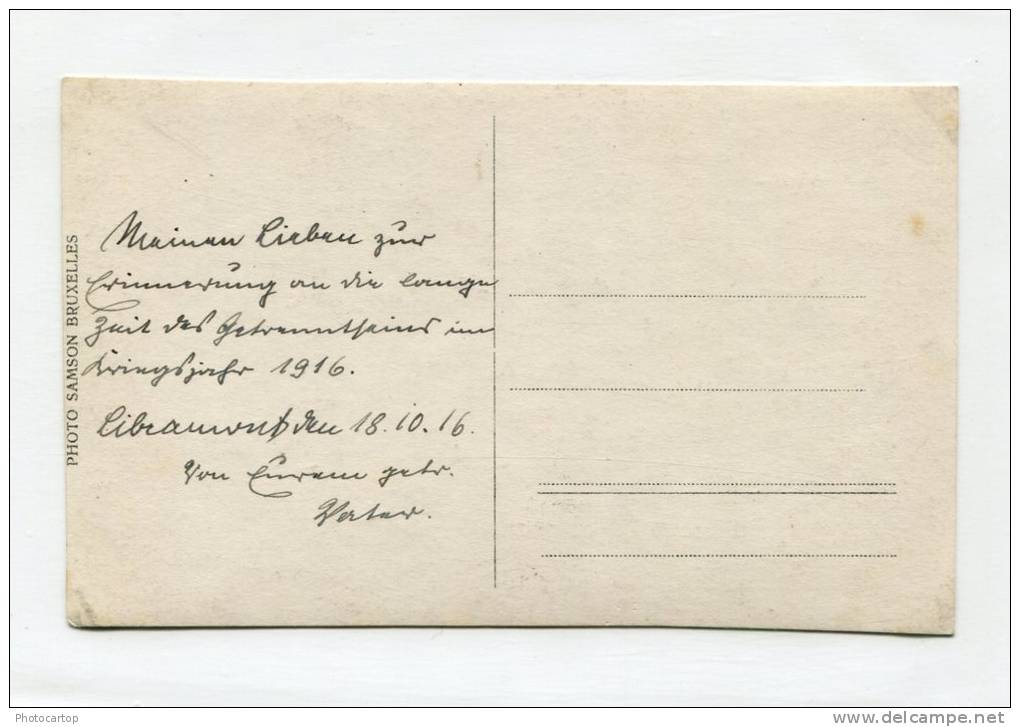 PHOTO SAMSON BRUXELLES
Meinen Lieben zur
Erinnerung an die lange
Zeit des Getrenntseins im
Kriegsjahr 1916.
Libramont den 18.10.16.
Von Eurem getr.
Vater.
Photocartop
delcampe.net